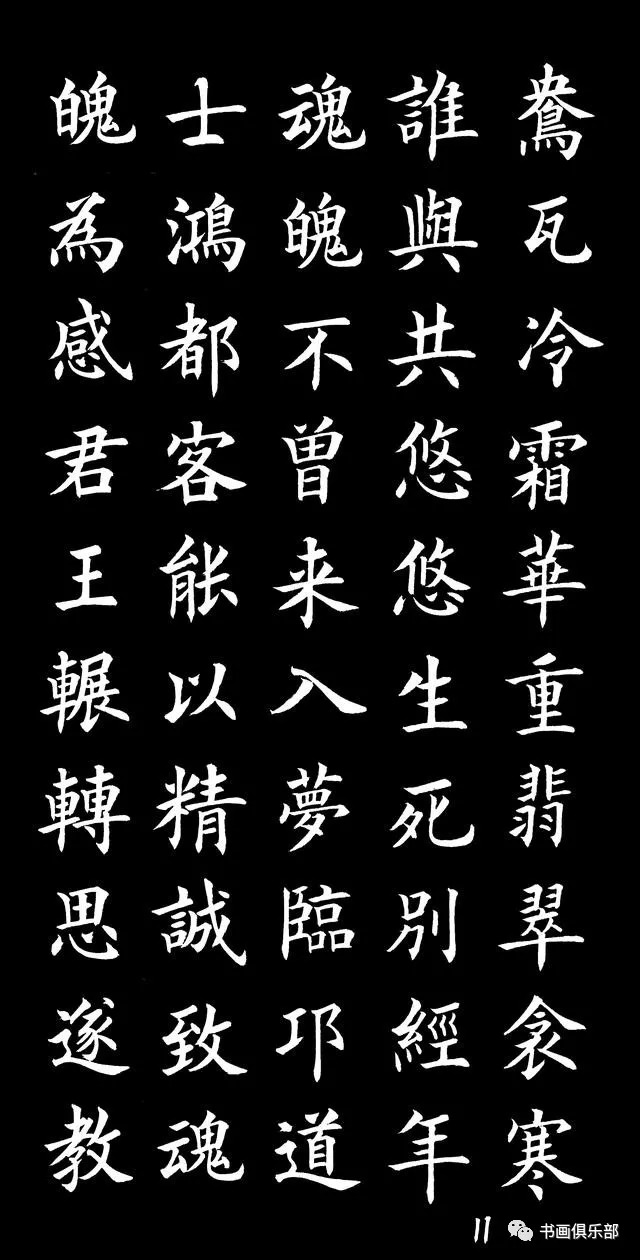 鴦瓦冷霜華重翡翠衾寒
誰與共悠悠生死別經年
魂魄不曾来入夢臨邛道
士鴻都客能以精誠致魂
魄為感君王輾轉思遂教
11
书画俱乐部